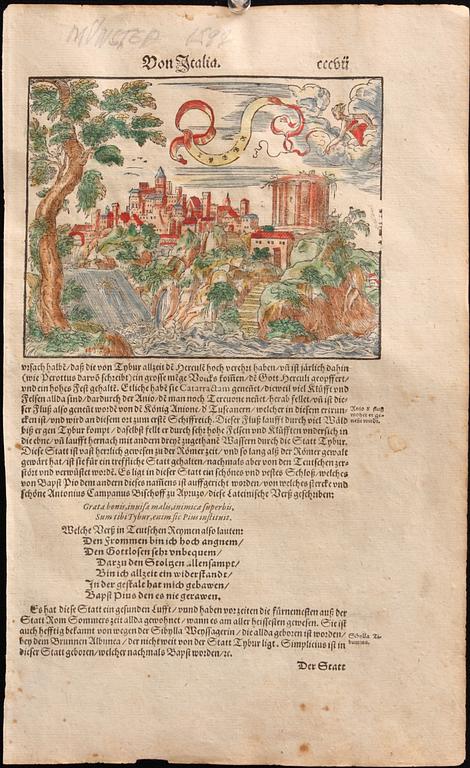 MÜNSTER
Von Italia. cccvii
vrsach halbē/ daß die von Tybur allzeit dē Herculē hoch verehrt haben/ vñ ist järlich dahin
(wie Perottus darvō schreibt) ein grosse mēge Volcks kom̃en/ dē Gott Herculi geopffert/
vnd ein hohes Fest gehaltē. Etliche habē sie Catarractam genēnet/ dieweil viel Klüfft vnd
Felsen allda sind/ dardurch der Anio/ dē man noch Teverone neñet/ herab fellet/ vñ ist die-
ser Fluß also genent wordē von dē König Anione/ ď Tuscanern/ welcher in diesem ertrun-
cken ist/ vnd wird an diesem ort zum erstē Schiffreich. Dieser Fluß laufft durch viel Wäld
biß er gen Tybur kompt/ daselbst fellt er durch sehr hohe Felsen vnd Klüfften vndersich in
die ebne/ vñ laufft hernach mit andern dreyē zugethanē Wassern durch die Statt Tybur.
Diese Statt ist vast herrlich gewesen zu der Römer zeit/ vnd so lang alß der Römer gewalt
gewärt hat/ ist sie für ein treffliche Statt gehalten/ nachmals aber von den Teutschen zer-
stört vnd verwüstet wordē. Es ligt in dieser Statt ein schönes vnd vestes Schloß/ welches
von Bapst Pio dem andern dieses nam̃ens ist auffgericht worden/ von welches stercke vnd
schöne Antonius Campanus Bischoff zu Apruzo/ diese Lateinische Verß geschriben:
Anio ď fluß
woher er ge-
nent wirdt.
Grata bonis, inuisa malis, inimica superbis,
Sum tibi Tybur, enim sic Pius instituit.
Welche Verß in Teutschen Reymen also lauten:
Den Frommen bin ich hoch angnem/
Den Gottlosen sehr vnbequem/
Darzu den Stolzen allensampt/
Bin ich allzeit ein widerstandt/
In der gestalt hat mich gebawen/
Bapst Pius den es nie gerawen.
Es hat diese Statt ein gesunden Lufft/ vnnd haben vorzeiten die fürnemesten auß der
Statt Rom Sommers zeit allda gewohnet/ wann es am aller heissesten gewesen. Sie ist
auch hefftig bekannt von wegen der Sibylla Weyssagerin/ die allda geboren ist worden/
bey dem Brunnen Albunea/ der nicht weit von der Statt Tybur ligt. Simplicius ist in
dieser Statt geboren/ welcher nachmals Bapst worden/ ꝛc.
Sibylla Ti-
burtina.
Der Statt